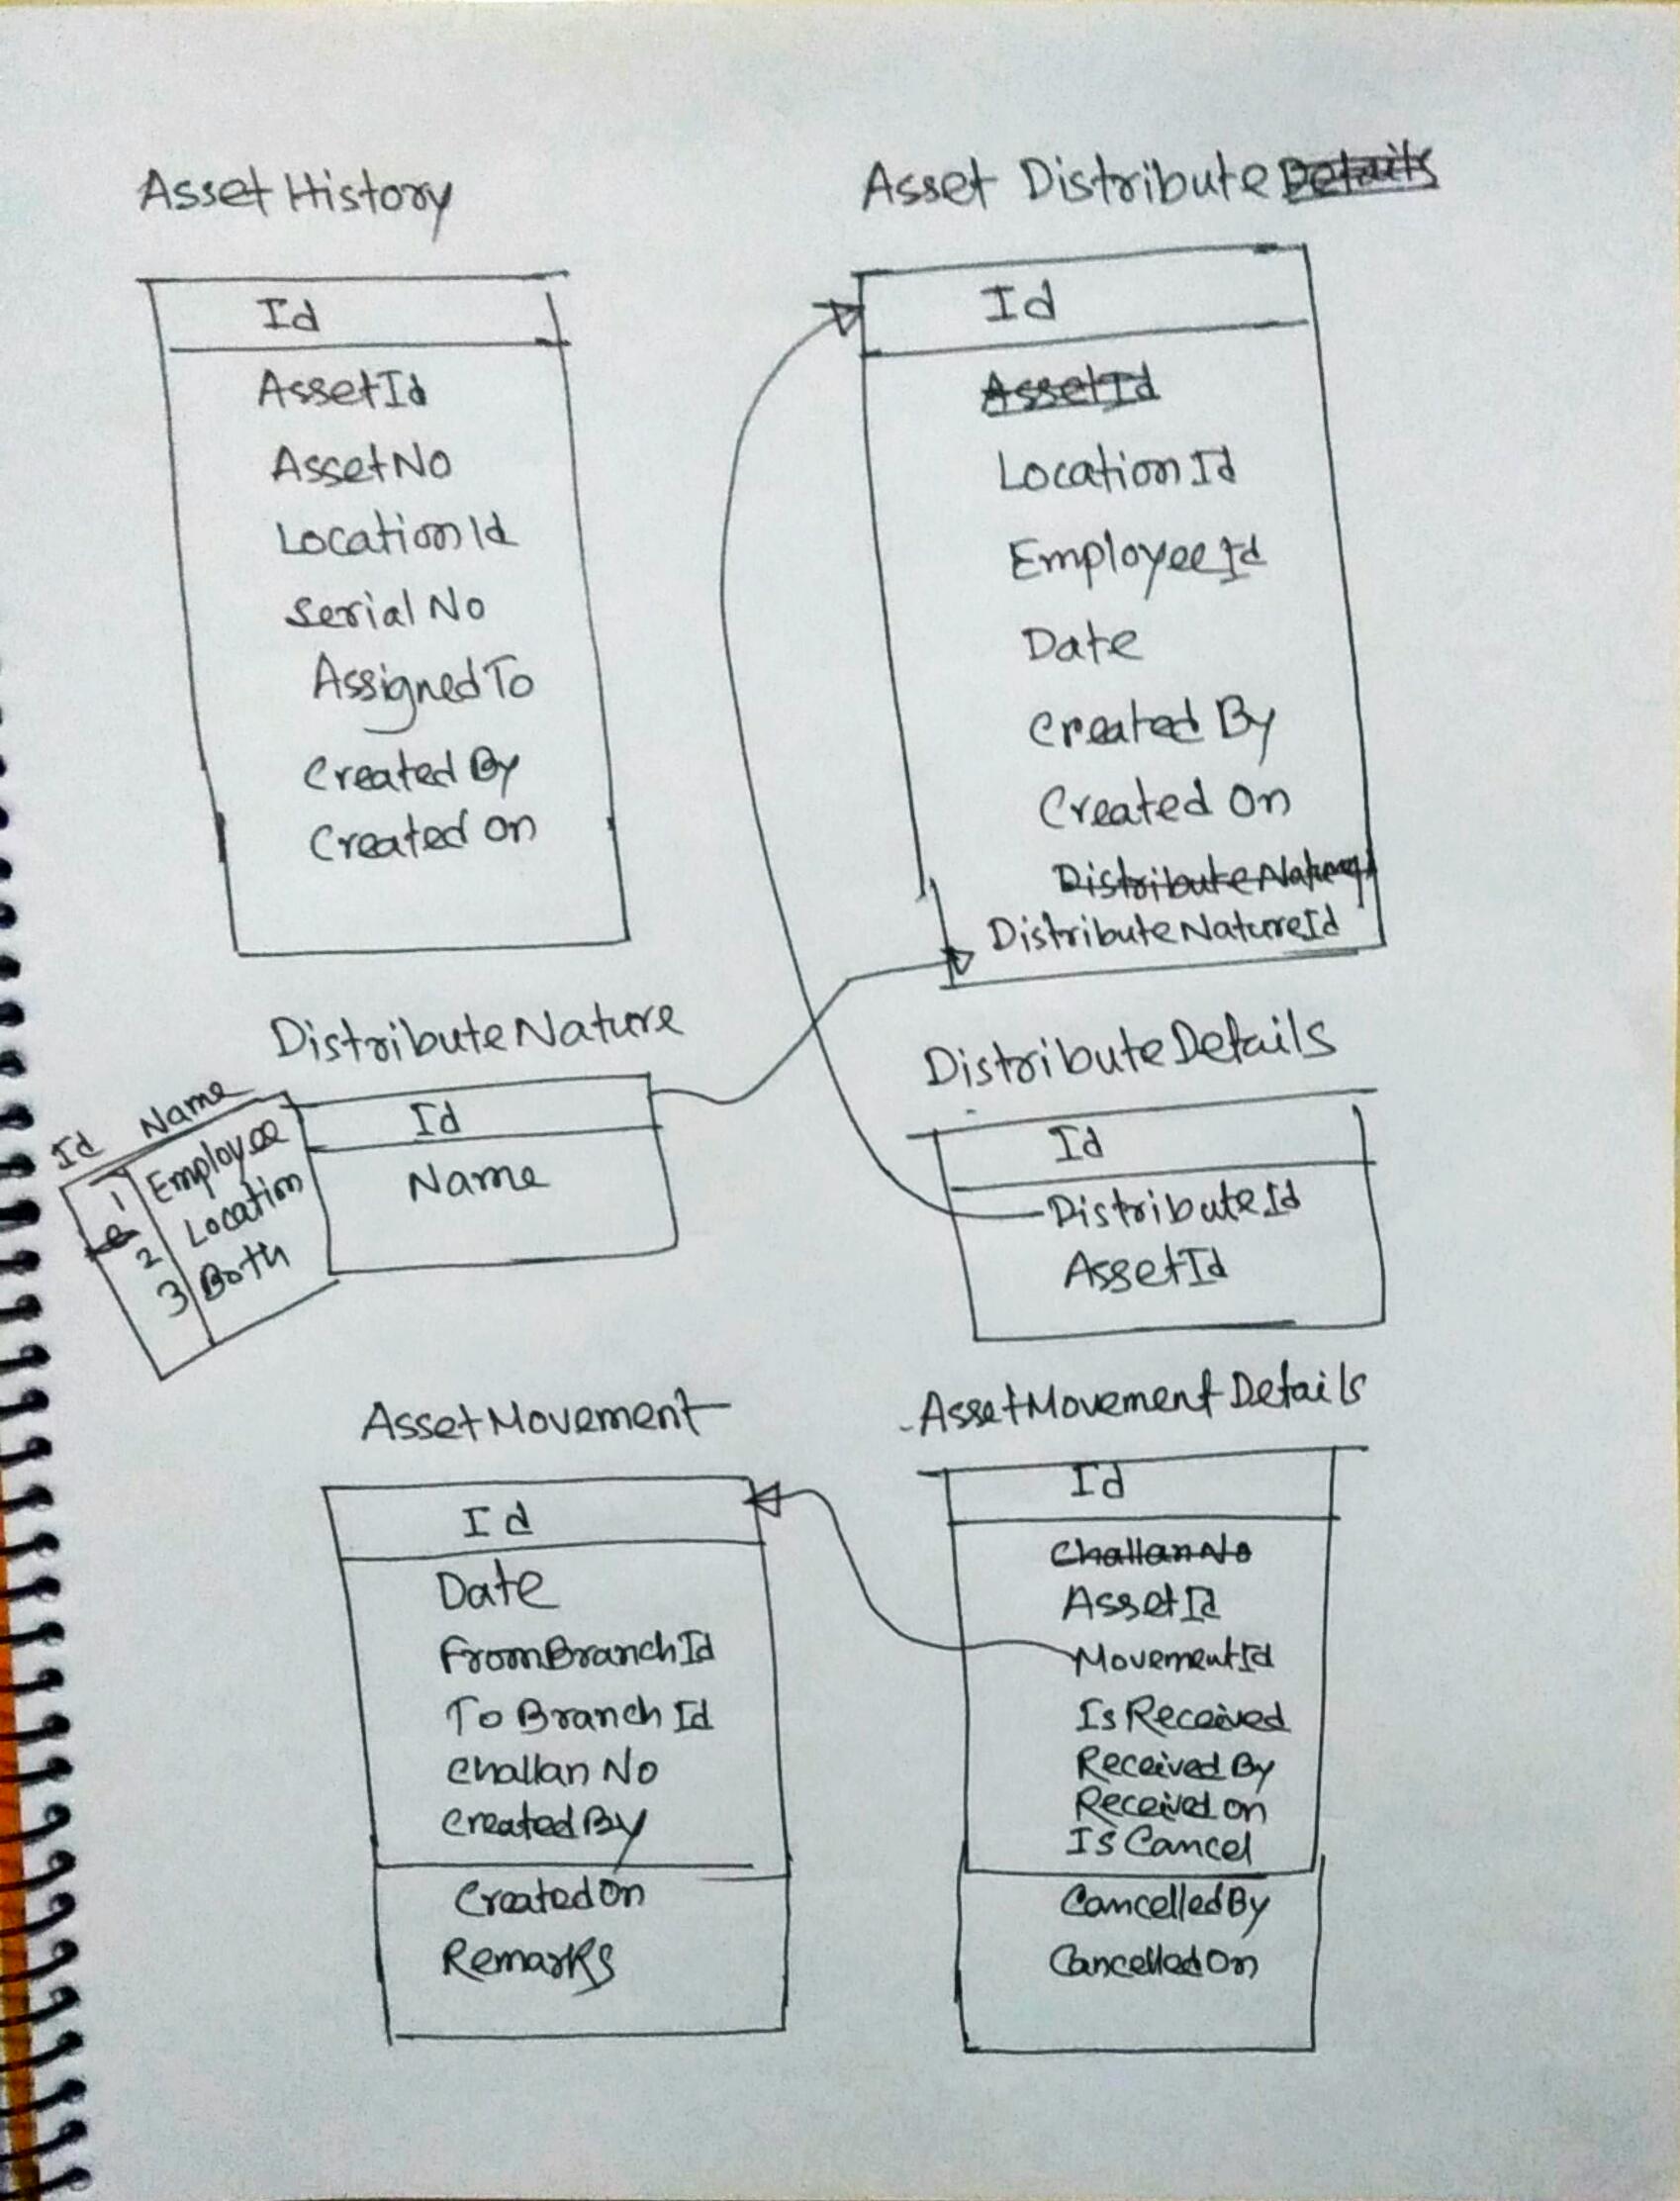 Asset History
Id
AssetId
AssetNo
LocationId
Serial No
AssignedTo
Created By
Created on
Asset Distribute Details
Id
AssetId
Location Id
EmployeeId
Date
Created By
Created On
DistributeNature
DistributeNatureId
DistributeNature
Id
Name
Id Name
1 Employee
2 Location
3 Both
DistributeDetails
Id
DistributeId
AssetId
AssetMovement
Id
Date
FromBranchId
To Branch Id
Challan No
CreatedBy
CreatedOn
Remarks
AssetMovement Details
Id
ChallanNo
AssetId
MovementId
Is Received
Received By
Received on
Is Cancel
CancelledBy
CancelledOn